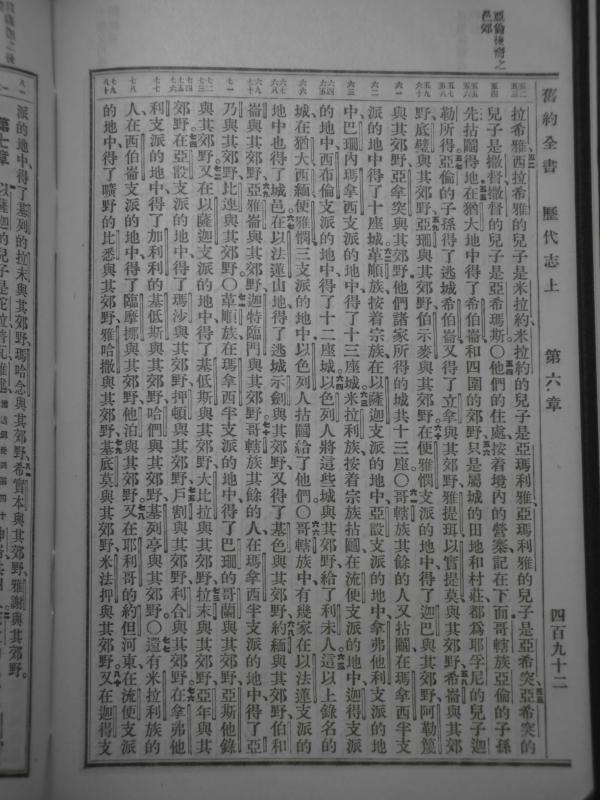 亞倫後裔之邑郊
舊約全書　歷代志上　第六章　四百九十二
拉希雅西拉希雅的兒子是米拉約米拉約的兒子是亞瑪利雅亞瑪利雅的兒子是亞希突亞希突的
兒子是撒督撒督的兒子是亞希瑪斯〇他們的住處按着境內的營寨記在下面哥轄族亞倫的子孫
先拈鬮得地在猶大地中得了希伯崙和四圍的郊野只是屬城的田地和村莊都爲耶孚尼的兒子迦
勒所得亞倫的子孫得了逃城希伯崙又得了立拿與其郊野雅提珥以實提莫與其郊野希崙與其郊
野底璧與其郊野亞珊與其郊野伯示麥與其郊野在便雅憫支派的地中得了迦巴與其郊野阿勒篾
與其郊野亞拿突與其郊野他們諸家所得的城共十三座〇哥轄族其餘的人又拈鬮在瑪拿西半支
派的地中得了十座城革順族按着宗族在以薩迦支派的地中亞設支派的地中拿弗他利支派的地
中巴珊內瑪拿西支派的地中得了十三座城米拉利族按着宗族拈鬮在流便支派的地中迦得支派
的地中西布倫支派的地中得了十二座城以色列人將這些城與其郊野給了利未人這以上錄名的
城在猶大西緬便雅憫三支派的地中以色列人拈鬮給了他們〇哥轄族中有幾家在以法蓮支派的
地中也得了城邑在以法蓮山地得了逃城示劍與其郊野又得了基色與其郊野約緬與其郊野伯和
崙與其郊野亞雅崙與其郊野迦特臨門與其郊野哥轄族其餘的人在瑪拿西半支派的地中得了亞
乃與其郊野比連與其郊野〇革順族在瑪拿西半支派的地中得了巴珊的哥蘭與其郊野亞斯他錄
與其郊野又在以薩迦支派的地中得了基低斯與其郊野大比拉與其郊野拉末與其郊野亞年與其
郊野在亞設支派的地中得了瑪沙與其郊野押頓與其郊野戶割與其郊野利合與其郊野在拿弗他
利支派的地中得了加利利的基低斯與其郊野哈們與其郊野基列亭與其郊野〇還有米拉利族的
人在西布倫支派的地中得了臨摩挪與其郊野他泊與其郊野又在耶利哥的約但河東在流便支派
的地中得了曠野的比悉與其郊野雅哈撒與其郊野基底莫與其郊野米法押與其郊野又在迦得支
派的地中得了基列的拉末與其郊野瑪哈念與其郊野希實本與其郊野雅謝與其郊野
第七章　以薩迦的兒子是陀拉普瓦雅述